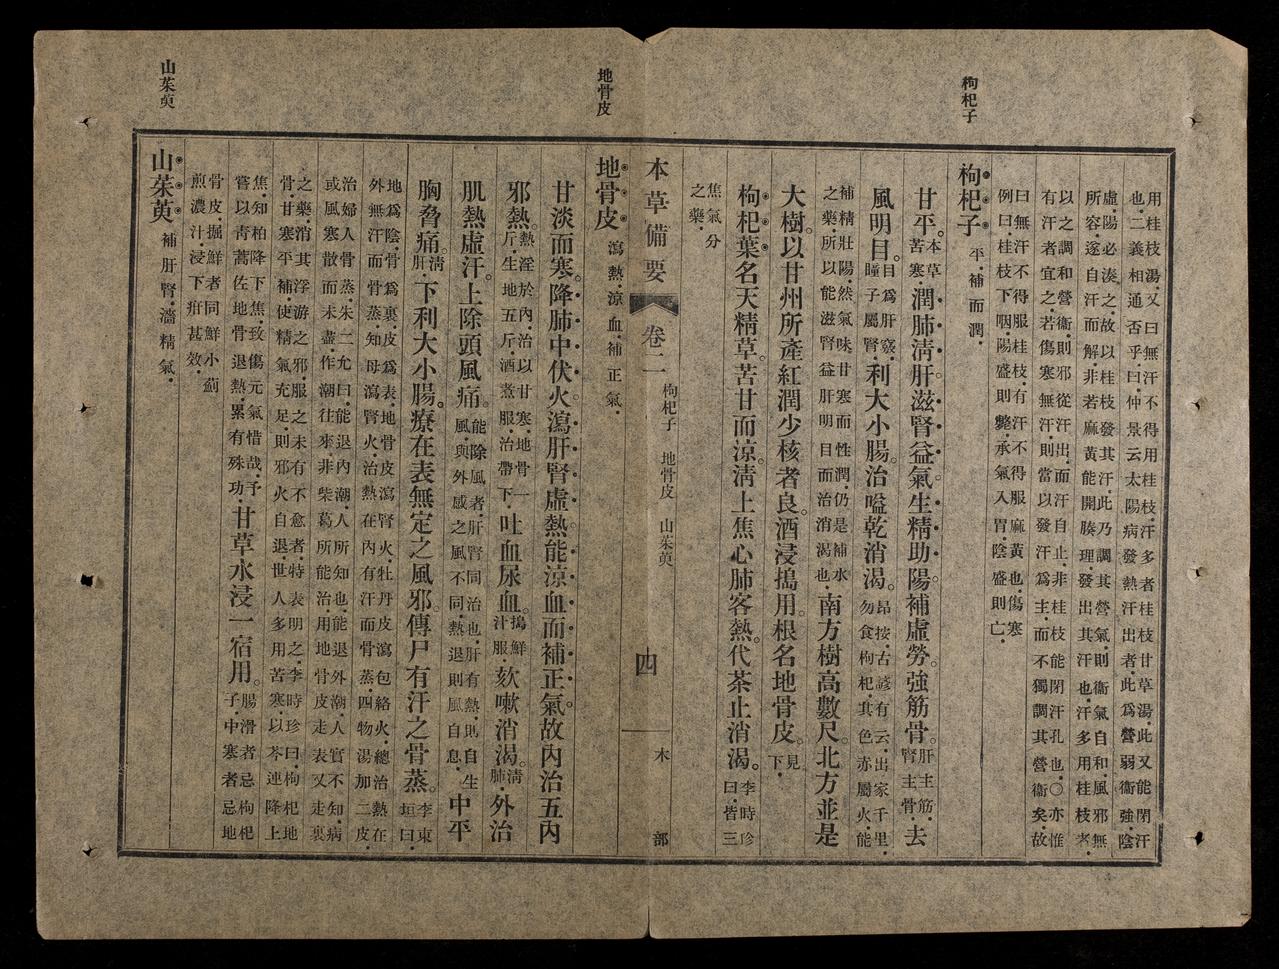 枸杞子
用桂枝湯.又曰無汗不得用桂枝.汗多者桂枝甘草湯.此又能閉汗
也.二義相通否乎.曰.仲景云.太陽病發熱汗出者.此爲營弱衞強.陰
虛.陽必湊之.故以桂枝發其汗.此乃調其營氣.則衞氣自和.風邪無
所容.遂自汗而解.非若麻黃能開腠理.發出其汗也.汗多用桂枝者.
以之調和營衞.則邪從汗出.而汗自止.非桂枝能閉汗孔也.〇亦惟
有汗者宜之.若傷寒無汗.則當以發汗爲主.而不獨調其營衞矣.故
曰無汗不得服桂枝.有汗不得服麻黃也.傷寒
例曰.桂枝下咽.陽盛則斃.承氣入胃.陰盛則亡.
枸杞子 平.補而潤.
甘平.本草苦寒.潤肺淸肝.滋腎益氣.生精助陽.補虛勞.強筋骨.肝主筋.腎主骨.去
風明目.目爲肝竅.瞳子屬腎.利大小腸.治嗌乾消渴.昂按.古諺有云.出家千里.勿食枸杞.其色赤屬火.能
補精壯陽.然氣味甘寒而性潤.仍是補水之藥.所以能滋腎益肝明目而治消渴也.南方樹高數尺.北方並是
大樹.以甘州所產紅潤少核者良.酒浸搗用.根名地骨皮.見下.
枸杞葉名天精草.苦甘而涼.淸上焦心肺客熱.代茶止消渴.李時珍曰.皆三
焦氣分之藥.
本草備要 卷二 枸杞子 地骨皮 山茱萸 四 木部
地骨皮
地骨皮 瀉熱.涼血.補正氣.
甘淡而寒.降肺中伏火.瀉肝腎虛熱.能涼血而補正氣.故內治五內
邪熱.熱淫於內.治以甘寒.地骨一斤.生地五斤.酒煑服.治帶下.吐血尿血.搗鮮汁服.欬嗽消渴.淸肺.外治
肌熱虛汗.上除頭風痛.能除風者.肝腎同治也.肝有熱.則自生風.與外感之風不同.熱退則風自息.中平
胸脅痛.淸肝.下利大小腸.療在表無定之風邪.傳尸有汗之骨蒸.李東垣曰.
地爲陰.骨爲裏.皮爲表.地骨皮瀉腎火.牡丹皮瀉包絡火.總治熱在
外無汗而骨蒸.知母瀉腎火.治熱在內有汗而骨蒸.四物湯加二皮.
治婦人骨蒸.朱二允曰.能退內潮.人所知也.能退外潮.人實不知.病
或風寒散而未盡.作潮往來.非柴葛所能治.用地骨皮走表又走裏
之藥.消其浮游之邪.服之未有不愈者.特表明之.李時珍曰.枸杞地
骨甘寒平補.使精氣充足.則邪火自退.世人多用苦寒.以芩連降上
焦.知柏降下焦.致傷元氣.惜哉.予嘗以靑蒿佐地骨退熱.累有殊功.甘草水浸一宿用.腸滑者忌枸杞子.中寒者忌地
骨皮.掘鮮者同鮮小薊
煎濃汁.浸下疳甚效.
山茱萸
山茱萸 補肝腎.濇精氣.